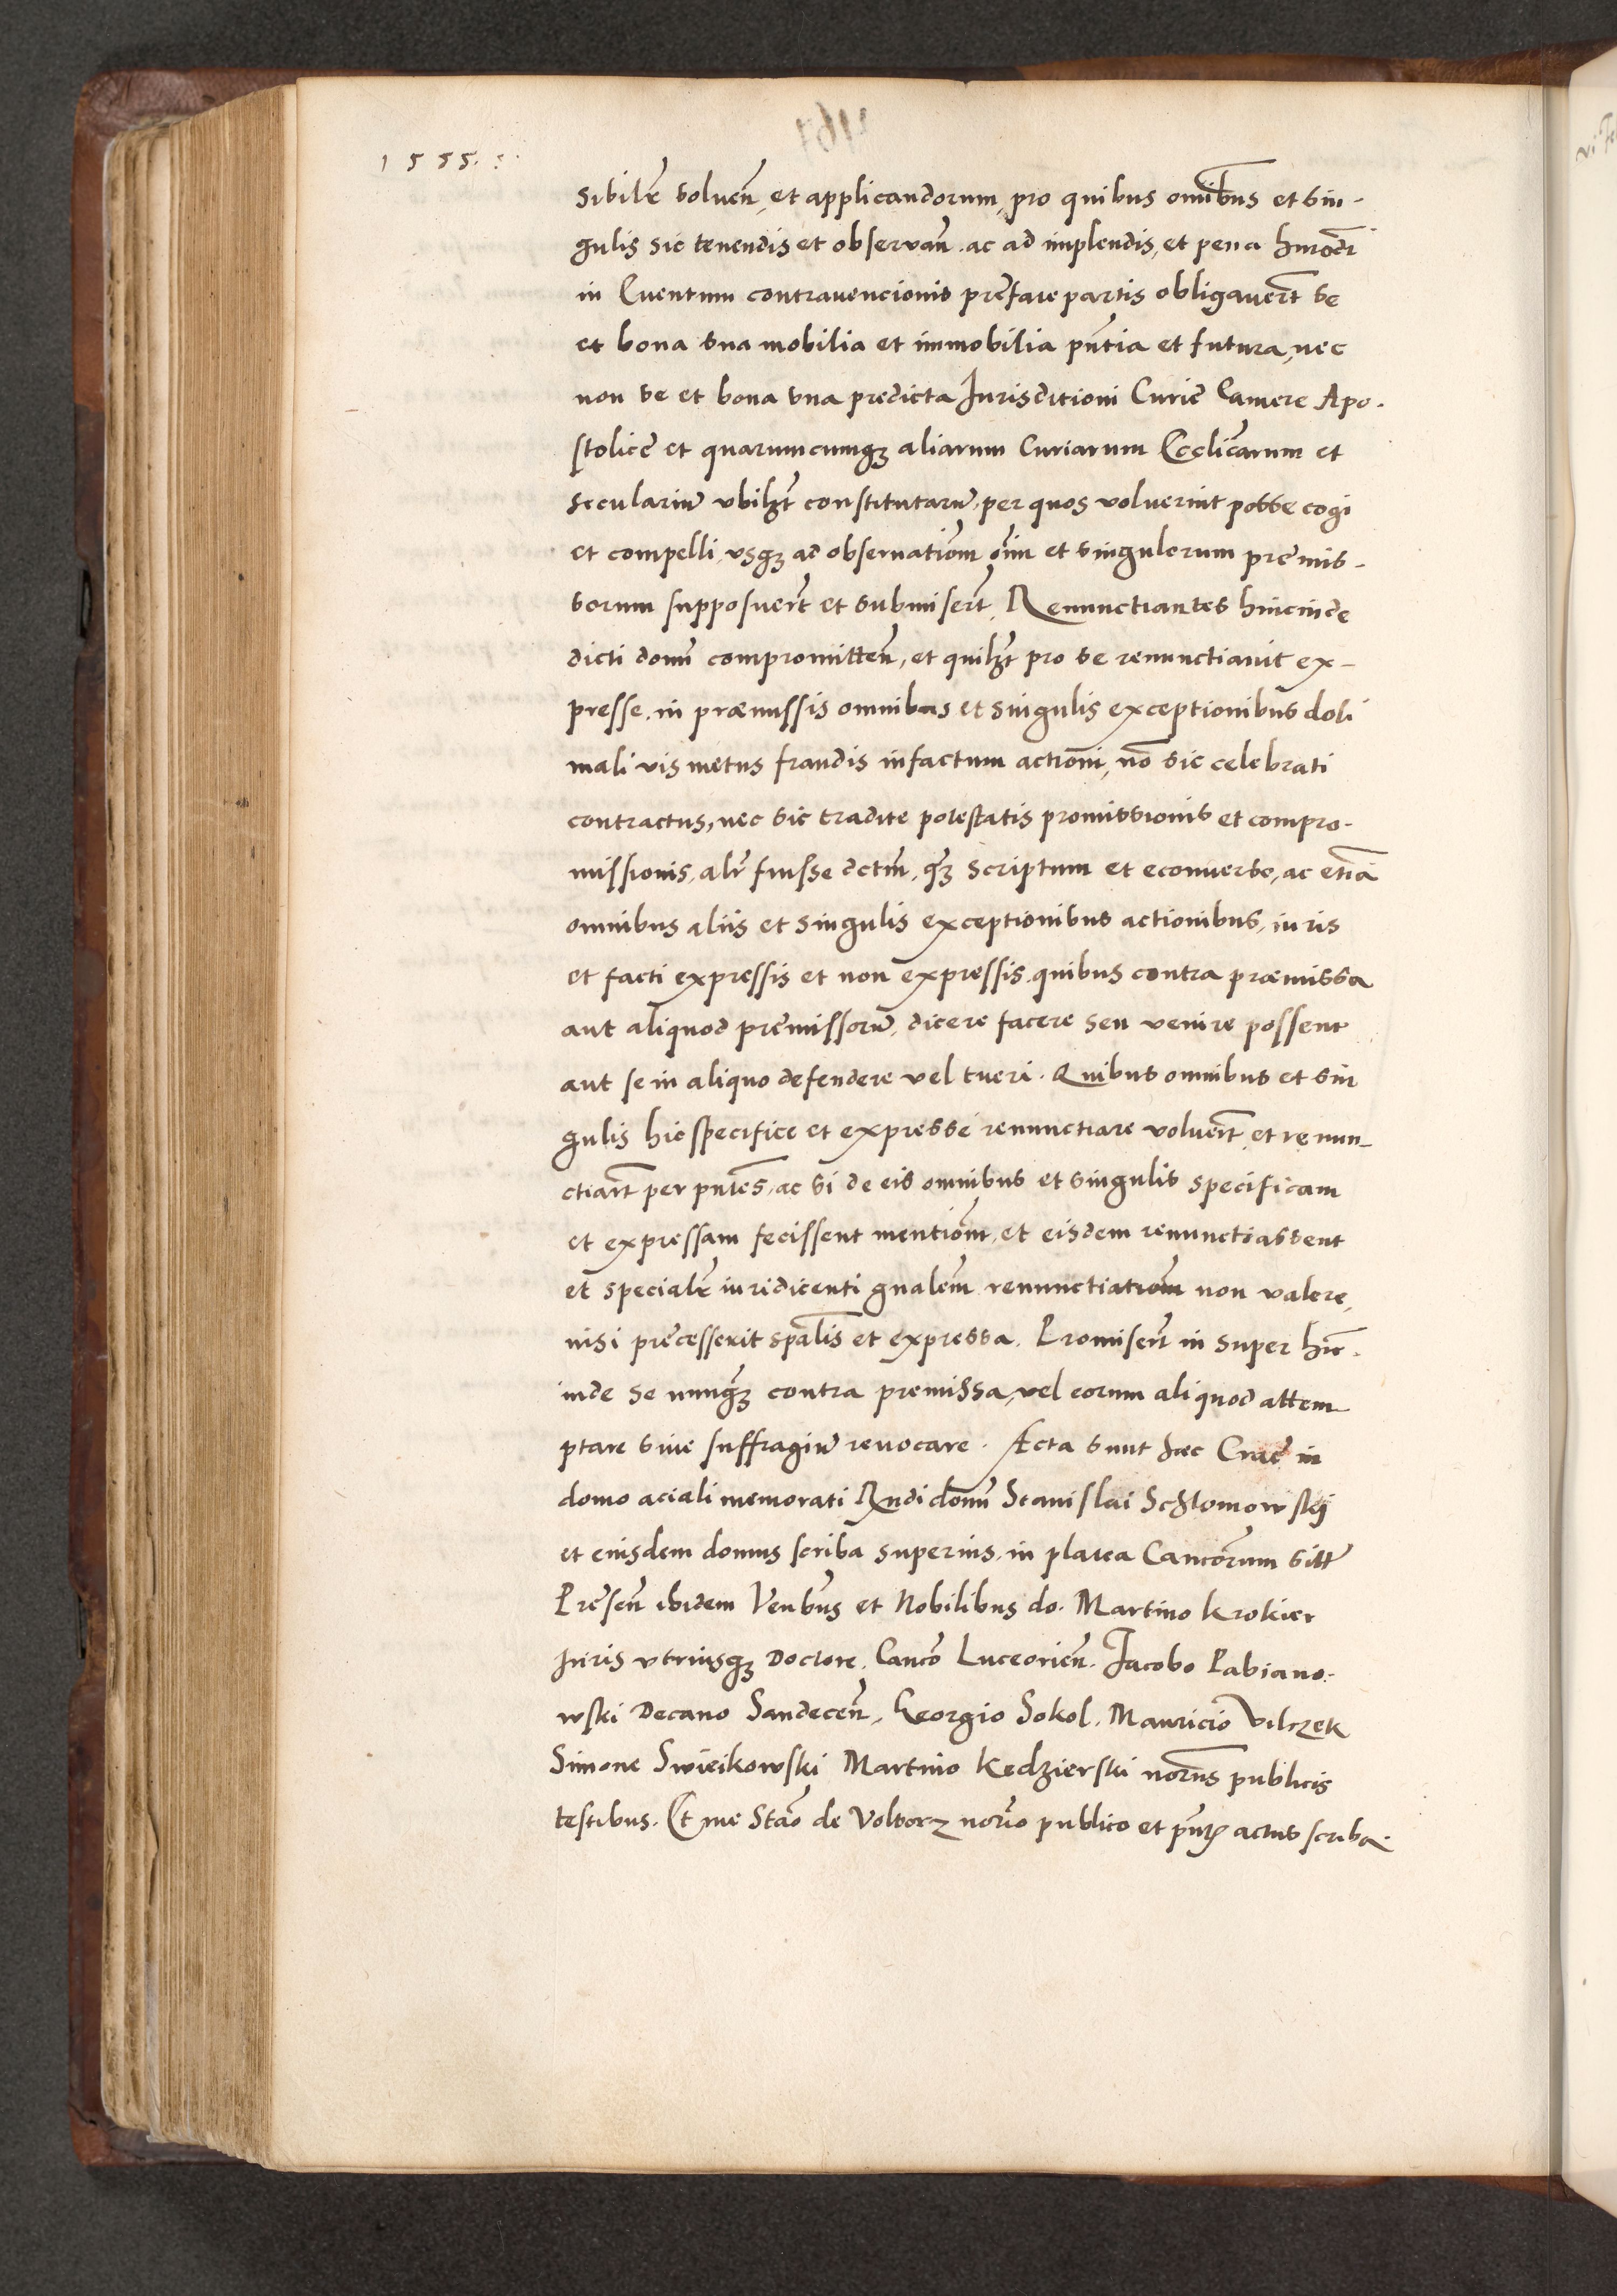 1555.
sibilr̄ soluen̄, et applicandorum, pro quibus om̄ibus et sin-
gulis sic tenendis et observan̄. ac ad implendis, et pena
in Euentum contravencionis prefate partis obligauer̄t se
et bona sua mobilia et immobilia pn̄tia et futura, nec
non se et bona sua predicta Jurisditioni Curie Camere Apo-
stolice et quarumcumqʒ aliarum Curiarum Eccl̄icarum et
seculariū vbilꝫt constitutarū, per quos voluerint posse cogi
et compelli, vsqʒ ad obseruatiōm om̄m et singulorum premis-
sorum supposuer̄t et submiser̄t. Renunctiantes hincinde
dicti domn̄ compromitten̄, et quilꝫt pro se renunctiauit ex-
presse. in præmissis omnibus et singulis exceptionibus doli
mali vis metus fraudis infactum actiōni, nō sic celebrati
contractus, nec sic tradite potestatis promissionis et compro-
missionis, alr̄ fuisse dctm̄, qʒ scriptum et econuerso, ac etiā
omnibus aliis et singulis exceptionibus actionibus, iuris
et facti expressis et non expressis. quibus contra præmissa
aut aliquod premissorū, dicere facere seu venire possent
aut se in aliquo defendere vel tueri. Quibus omnibus et sin
gulis hic specifice et expresse renunctiare voluer̄t, et renun-
ctiar̄t per pn̄tes, ac si de eis omnibus et singulis specificam
et expressam fecissent mentiōm, et eisdem renunctiassent
et specialr̄ iuridicenti gn̄alem renunctiatiōm non valere,
nisi precesserit spālis et expressa. Promiser̄t in super hic-
inde se nunqʒ contra premissa, vel eorum aliquod attem-
ptare siue suffragiū reuocare. Acta sunt hec Crac̄ in
domo aciali memorati Rndi domn̄ Stanislai Schlomowskij
et eiusdem domus scriba superius. in platea Can̄corum sitt̄
Presen̄ ibidem Ven̄bus et Nobilibus do. Martino Krokier
Juris vtriusqʒ Doctore. Can̄co Luceorien̄. Jacobo Pabiano-
wski Decano Sandecen̄, Georgio Sokol. Mauricio Vilczek
Simone Swieikowski Martino Kedzierski nor̄iis publicis
testibus. Et me Stāo de Volborz nor̄io publico et pn̄tis actus scriba.